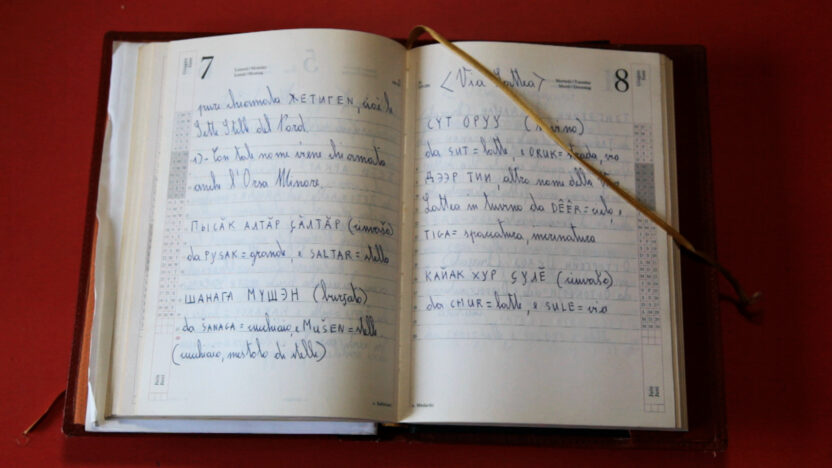 7
pure chiamata ЖЕТИГЕН, cioè le
Sette Stelle del Nord
1)- Con tal nome viene chiamata
anche l'Orsa Minore.
ПЫСĂК АЛТĂР ÇĂЛТĂР (ciuvascio)
da PYSAK = grande, e SALTAR = stella
ШАНАГА МҮШЭН (buriato)
da ŠANAGA = cucchiaio, e MUŠEN = stelle
(cucchiaio, mestolo di stelle)
8
<Via Lattea>
СҮТ ОРУУ (tuvino)
da SUT = latte, e ORUK = strada, via
ДЭЭР ТИИ, altro nome della Via
Lattea in tuvino da DÊÊR = cielo, e
TIGA = spaccatura, incrinatura
КАЙĂК ХУР ÇУЛĔ
da CHUR = latte, e SULE = via